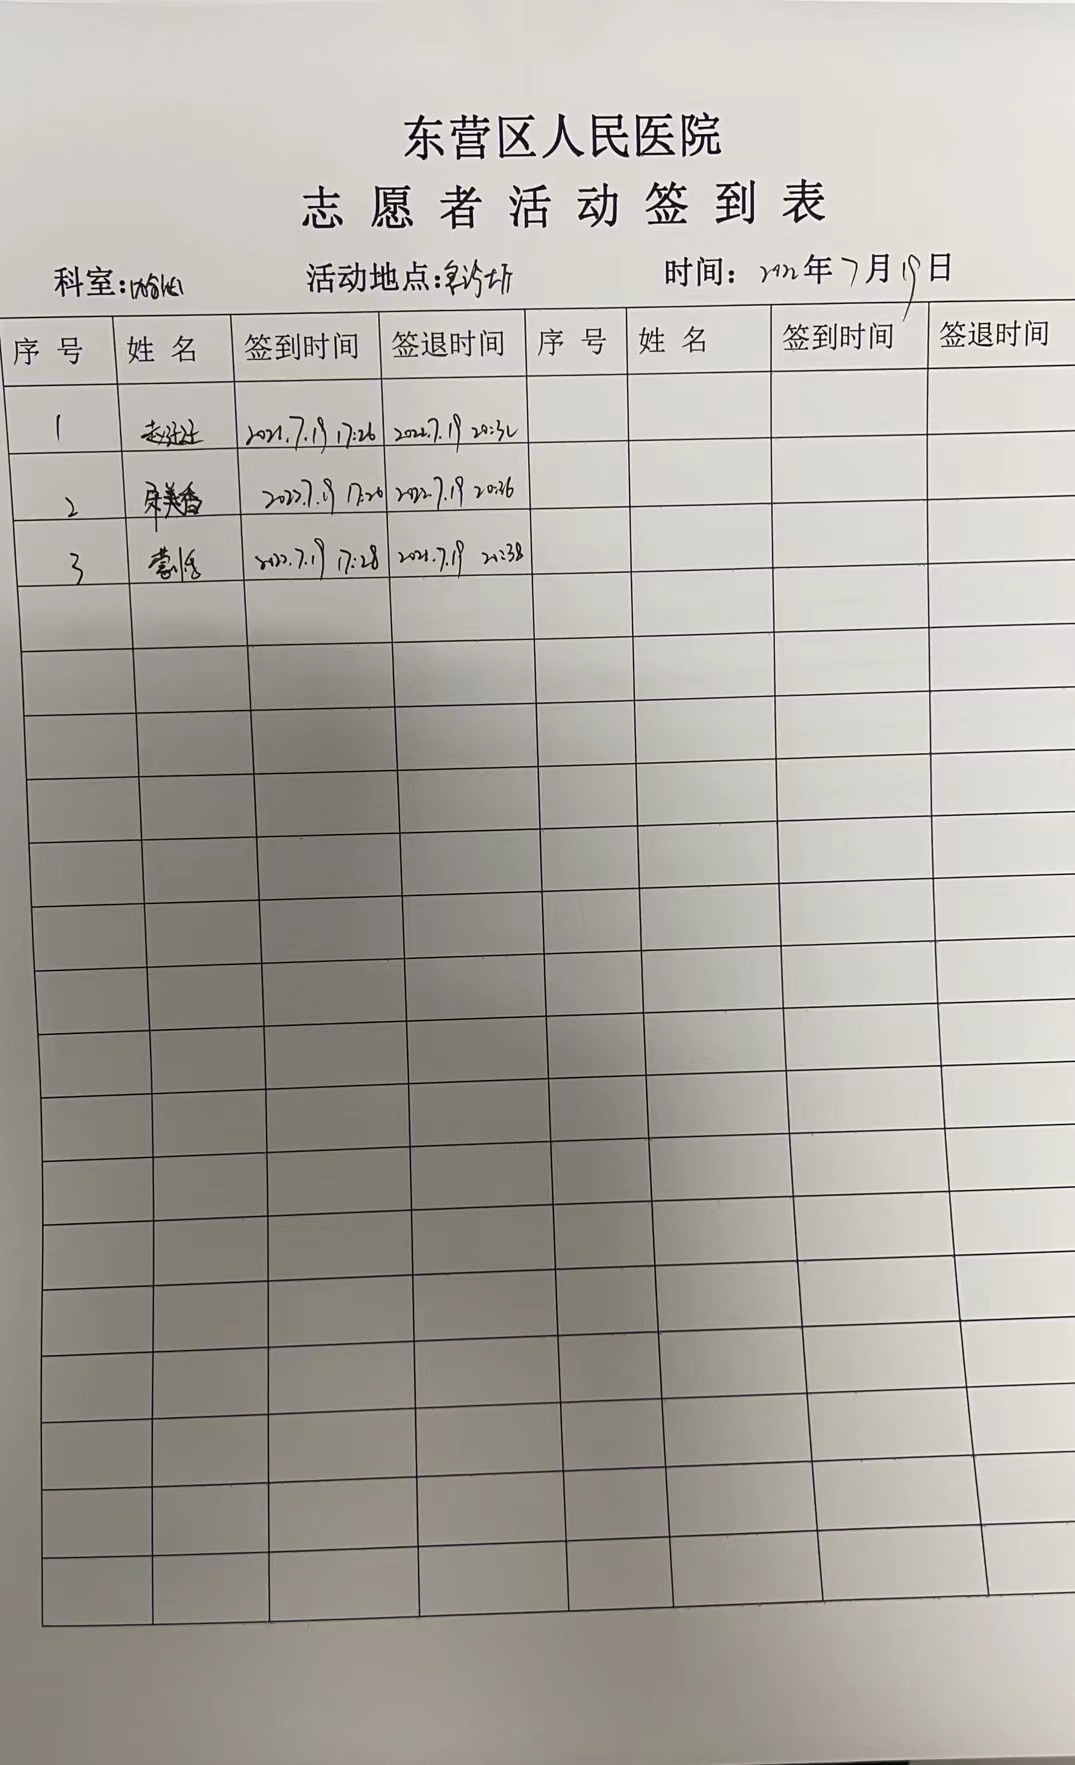 东营区人民医院
志愿者活动签到表
科室: 活动地点: 时间: 2022年7月19日
序号 姓名 签到时间 签退时间 序号 姓名 签到时间 签退时间
1 2021.7.19 17:26 2022.7.19 20:32
2 宋美香 2022.7.19 17:26 2022.7.19 20:36
3 2022.7.19 17:28 2022.7.19 20:38